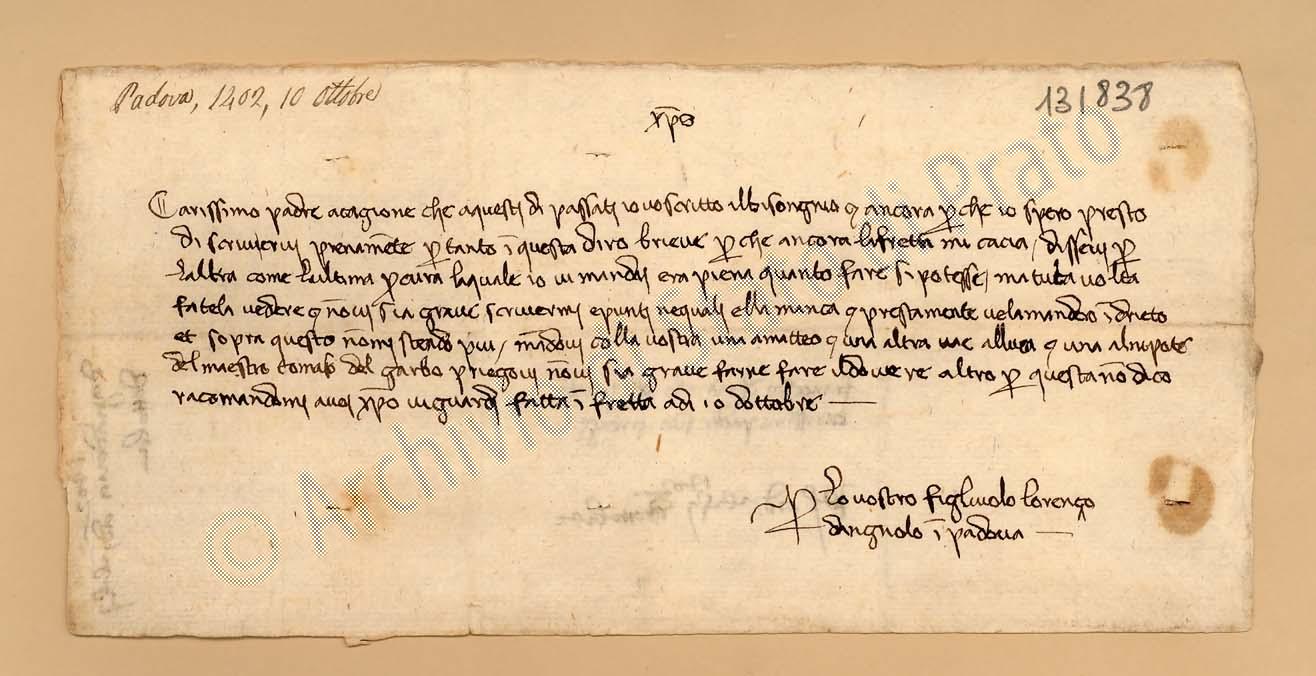 Padova, 1402, 10 Ottobre
131838
xp̄o
Carissimo padre acagione che aquesti dì passati io vo scritto ilbisongnio e ancora perche io spero presto
di scrivervi prenamēte p tanto ī questa diro brieve p che ancora lafretta mi cacia, dissevi p
laltra come lultima pcura laquale io vi mandai era piena quanto fare si potesse, ma tutta volta
fatela vedere e nōvi sia grave scrivermi epunti nequali ella manca e prestamente velamandero īdrieto
et sopra questo nōmi stendo piu, mādovi colla vostra una amatteo e una altra vae alluca e una alnipote
del maestro Tomaso del garbo priegovi nōvi sia grave farne fare ildovere altro p questa nō dico
racomandomi avoi xp̄o viguardi fatta ī fretta adi 10 dottobre
P lo vostro figliuolo lorenço
dangnolo ī padova
© Archivio di Stato di Prato